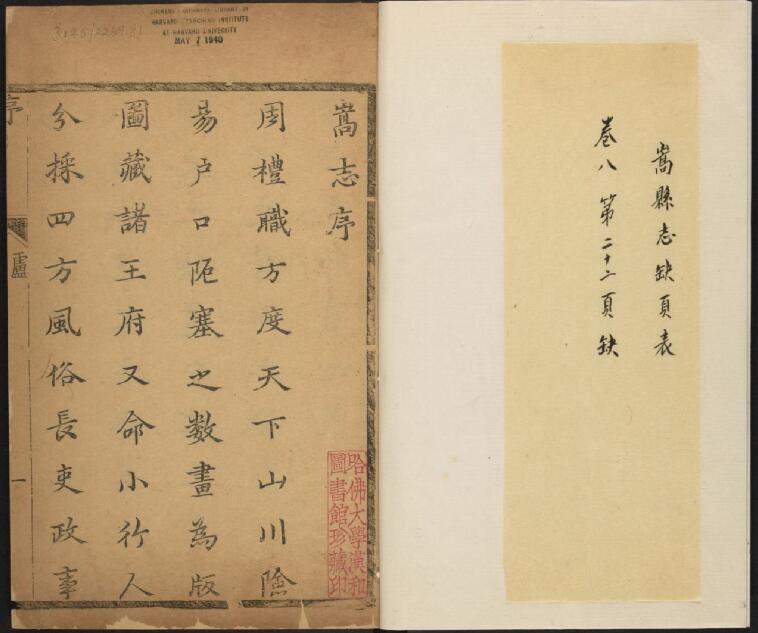 嵩縣志缺頁表
卷八 第二十二頁缺
CHINESE-JAPANESE LIBRARY OF
HARVARD-YENCHING INSTITUTE
AT HARVARD UNIVERSITY
MAY 7 1940
嵩志序
周禮職方度天下山川險
易户口阨塞之數畫為版
圖藏諸王府又命小行人
分採四方風俗長吏政事
序
盧
一
哈佛大學漢和
圖書館珍藏印